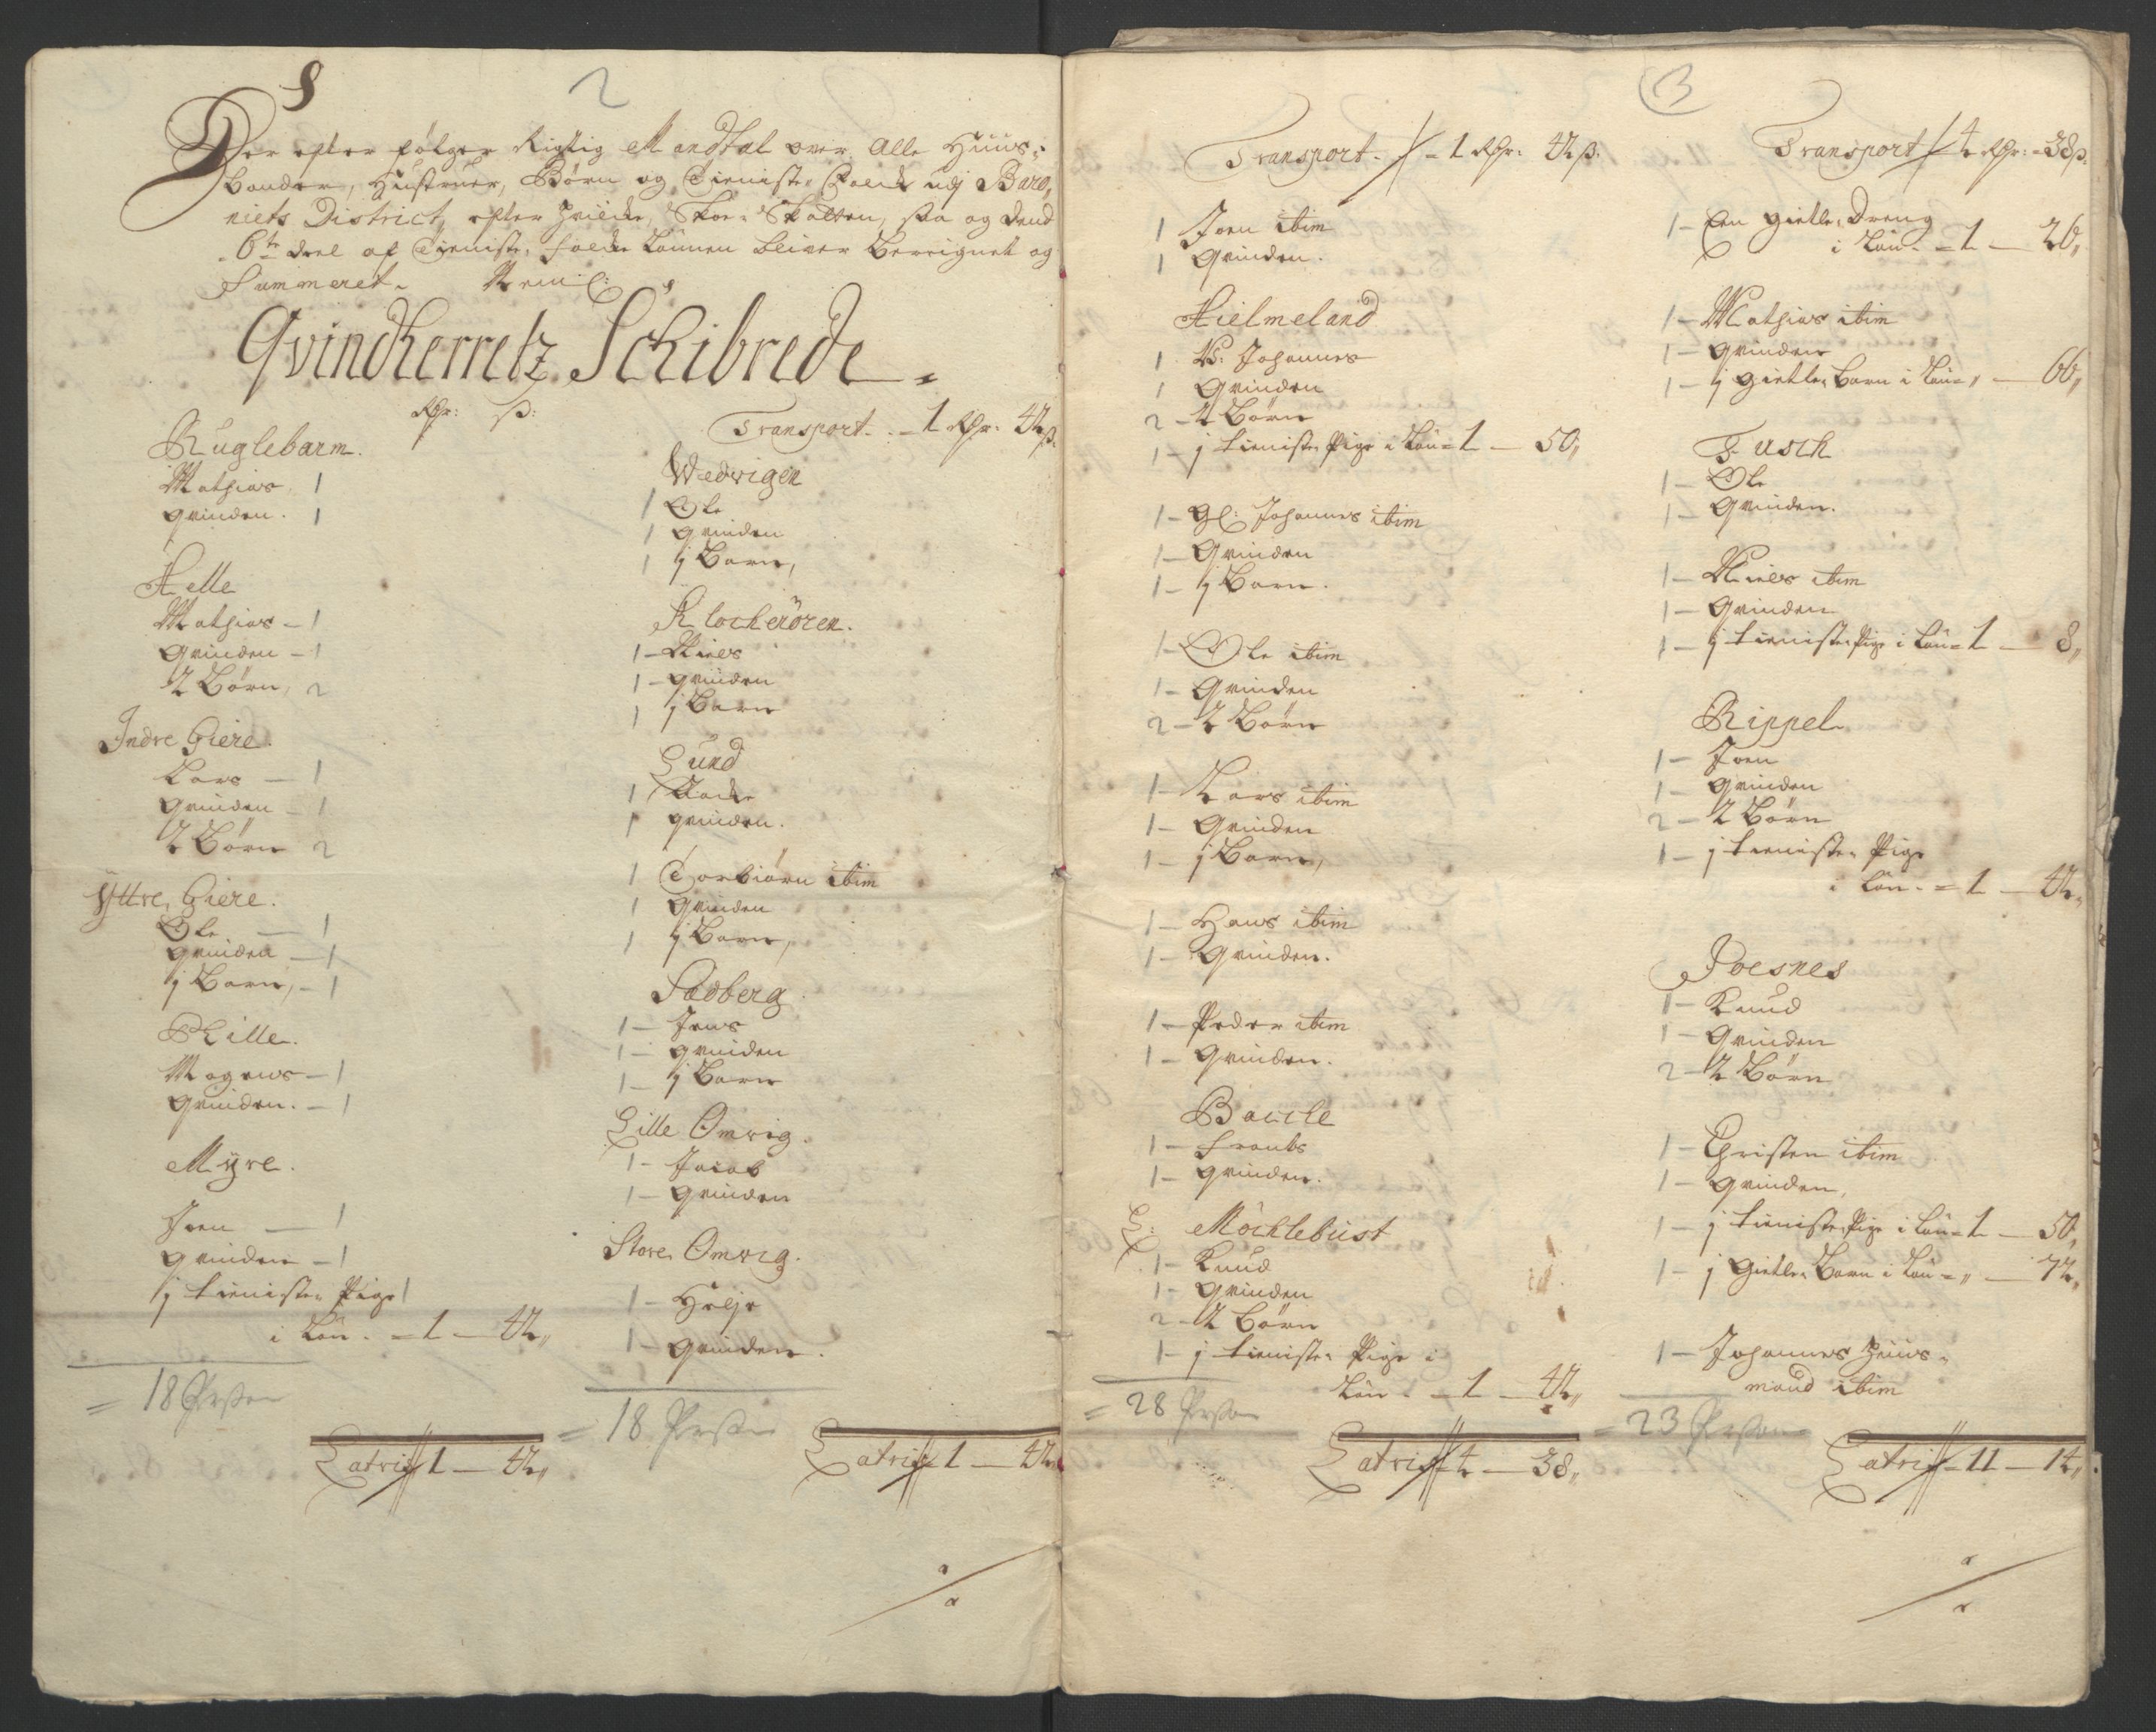 2
Her efter følger Rigtig Mandtal over Alle Huus-
bonder, Hustruer, Børn og Tieniste Folck udj Baro,
niets District, efter huilcke, Skoe-Skatten, saa og dend
6te deel af Tieniste folckes Lønnen bliver Bereignet og
Summeret. Nemlig:
Qvindherretz Schibrede.
Rdr: ß:
Ruglebarm.
Mathias 1
Qvinden. 1
Helle
Mathias - 1
Qvinden - 1
2 Børn, 2
Indre Giere.
Lars - 1
Qvinden - 1
2 Børn 2
Yttre Giere.
Ole - 1
Qvinden - 1
j Barn, - 1
Rille.
Mogens - 1
Qvinden. - 1
Myre.
Joen - 1
Qvinden - 1
j tieniste Pige 1
i Løn. = 1 - 42,,
= 18 Person
Latris 1 - 42,,
Transport - 1 Rdr: 42 ß.
Wedvigen
1 Ole
1 Qvinden
1 j Barn,
Klockerøren.
1 - Niels
1 - Qvinden
1 j Barn
Sund
1
1 Qvinden.
1 Torbiørn ibim
1 Qvinden
1 j Barn,
Sadberg.
1 - Jens
1 - Qvinden
1 - j Barn
Lille Omvig.
1 - Jacob
1 - Qvinden
Store Omvig.
1 - Helje
1 - Qvinden.
= 18 Person
Latris 1 - 42,,
3
Transport. - 1 Rdr: 42 ß.
1 Joen ibim
1 Qvinden.
Hielmeland
1 N: Johannes
1 Qvinden
2 - 2 Børn
1 - j tieniste Pige i Løn = 1 - 50,,
1 - Gl: Johannes ibim
1 - Qvinden
1 - j Barn.
1 - Ole ibim
1 - Qvinden
2 - 2 Børn
1 - Lars ibim
1 - Qvinden
1 - j Barn,
1 - Hans ibim
1 - Qvinden.
1 - Peder ibim
1 - Qvinden.
Bacile
1 - Frants
1 - Qvinden.
L: Möcklebust
1 - Knud
1 - Qvinden
2 - 2 Børn
1 - j tieniste Pige i
Løn. - 1 - 42,,
= 28 Person
Latris 4 - 38,,
Transport 4 Rdr: 38 ß.
1 - Een gietle Dreng
i Løn. = 1 - 26,,
1 - Mathias ibim
1 - Qvinden
1 - j gietle Barn i Løn = ,, - 66,,
Tusch
1 - Ole
1 - Qvinden.
1 - Niels ibim
1 - Qvinden
1 - j tieniste Pige i Løn = 1 - 8,,
Rippel
1 - Joen
1 - Qvinden
2 - 2 Børn
1 - j tieniste Pige
i Løn. = 1 - 42,,
Joesnes
1 - Knud
1 - Qvinden
2 - 2 Børn
1 - Christen ibim
1 - Qvinden,
1 - j tieniste Pige i Løn = 1 - 50,,
1 - j Gietle Barn i Løn = ,, - 72,,
1 - Johannes Huus-
mand ibim
= 23 Persone
Latris 11 - 14,,